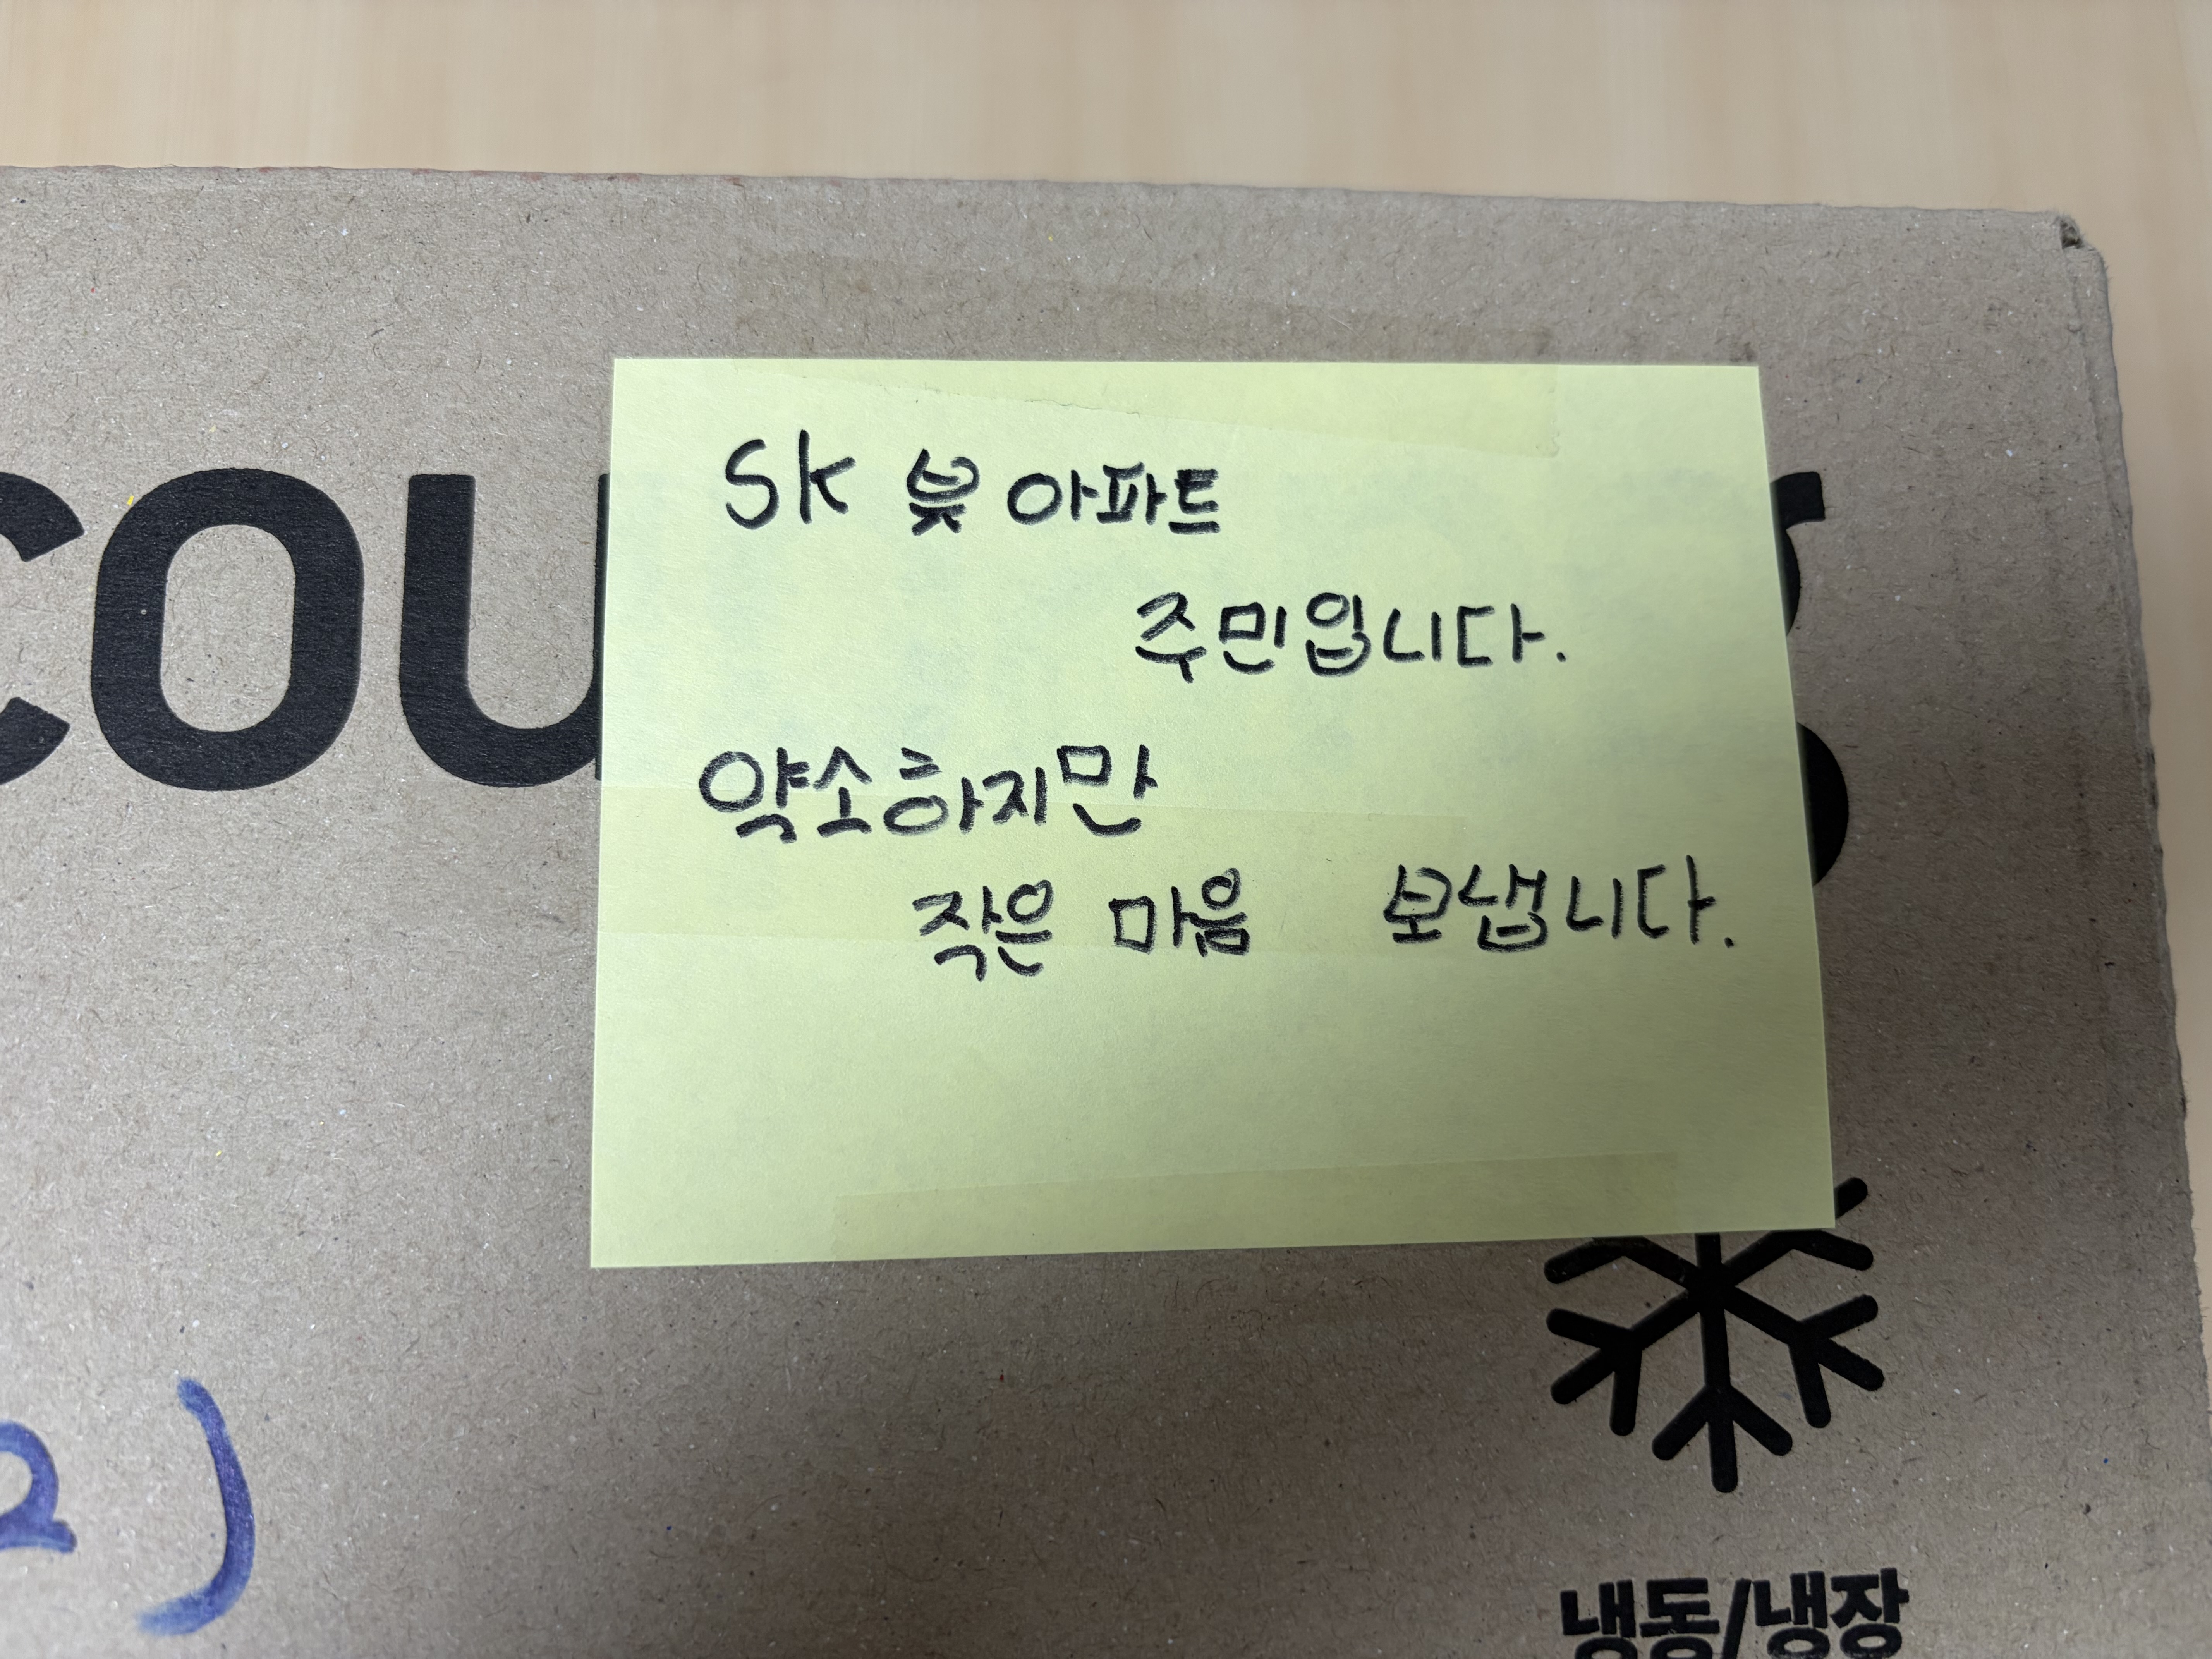 SK 뷪 아파트
주민입니다.
약소하지만
작은 마음 보냅니다.
cou
2)
냉동/냉장